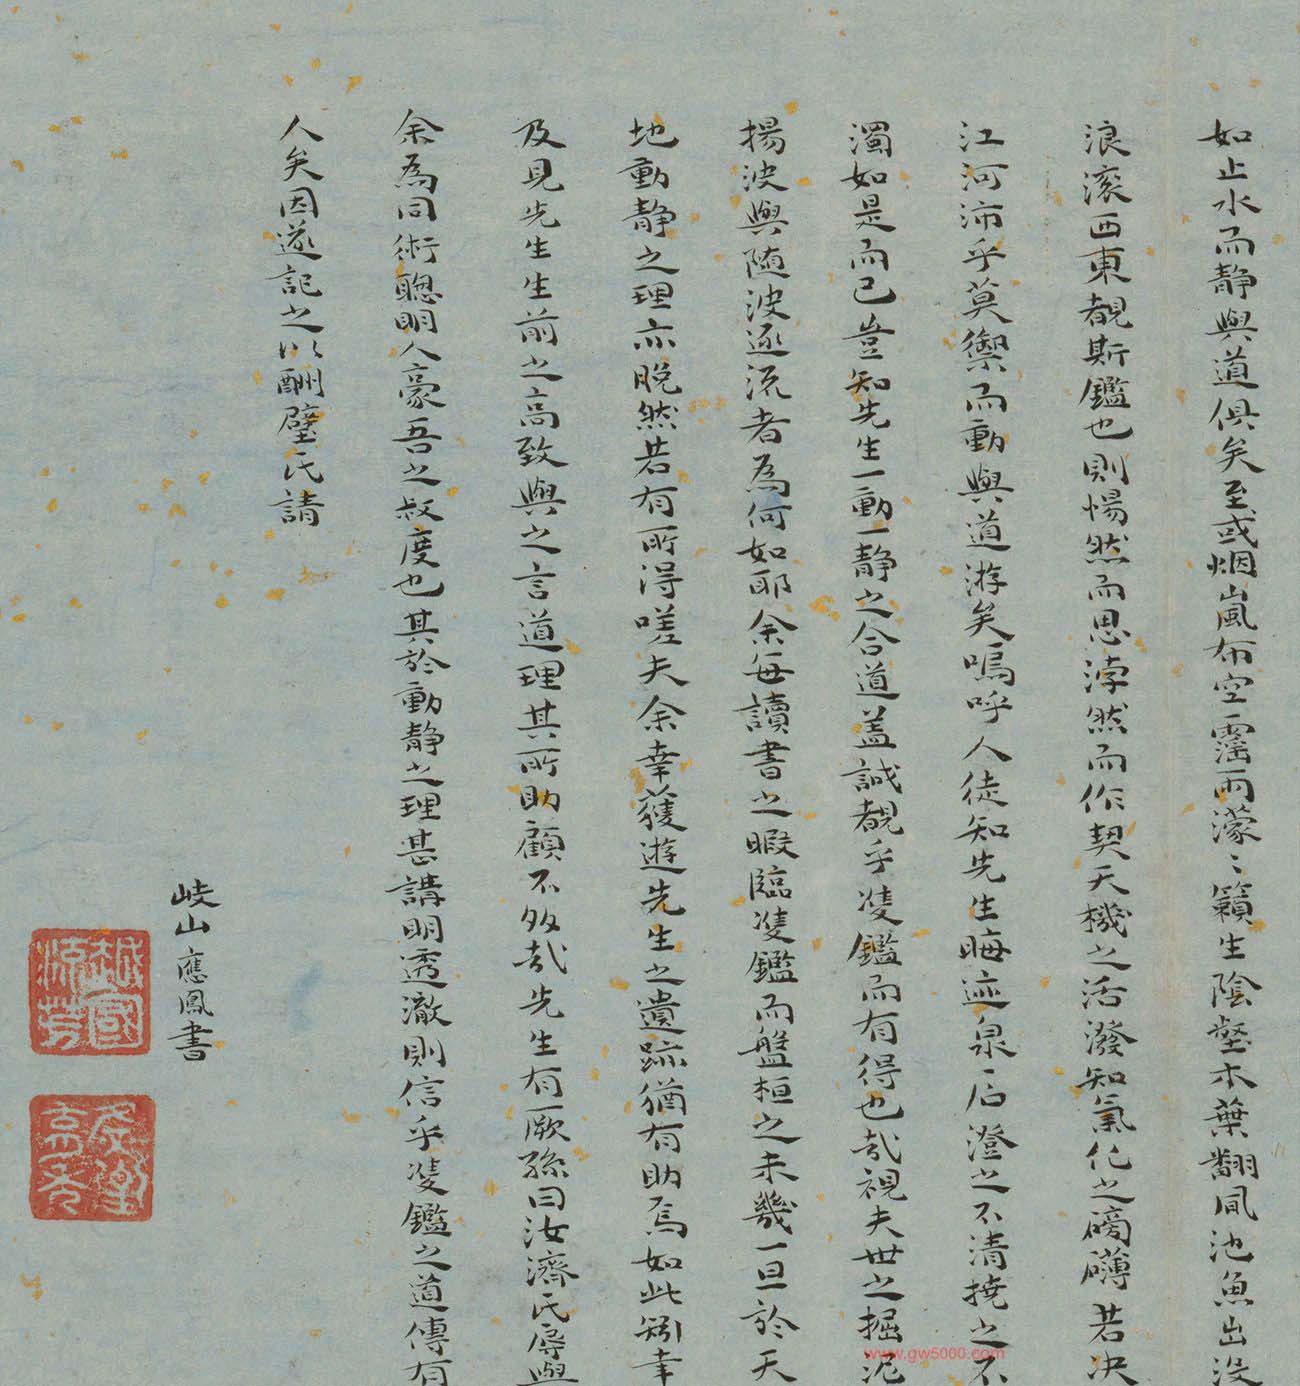 如止水而静與道俱矣至或烟嵐布空霪雨濛〻籟生陰壑木葉翻風池魚出没
浪滚西東覩斯鑑也則惕然而思浡然而作契天機之活潑知氣化之磅礴若决
江河沛乎莫禦而動與道游矣嗚呼人徒知先生晦迹泉石澄之不清撓之不
濁如是而已豈知先生一動一静之合道盖誠覩乎雙鑑而有得也哉視夫世之掘泥
揚波與随波逐流者為何如耶余每讀書之暇臨雙鑑而盤桓之未幾一旦於天
地動静之理亦脱然若有所得嗟夫余幸獲遊先生之遺跡猶有助焉如此矧幸
及見先生生前之高致與之言道理其所助顧不多哉先生有厥孫曰汝濟氏辱與
余為同術聰明人豪吾之叔度也其於動静之理甚講明透澈則信乎雙鑑之道傳有
人矣因遂記之以酬璧氏請
岐山應鳳書
越國流芳
www.gw5000.com